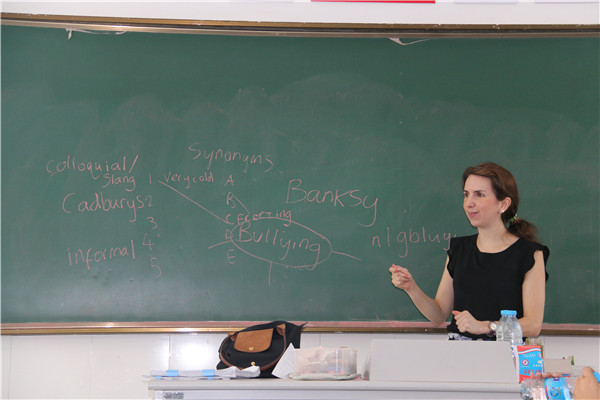 Synonyms
colloquial/
Slang
1 very cold A
Cadburys 2
B
Banksy
3
C
Informal 4
D
Bullying
5
E